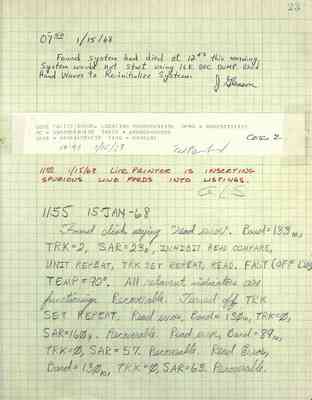 23
07⁵⁰ 1/15/68
Found system had died at 12⁴⁵ this morning.
System would not start using 16K DEC DUMP. Used
Hand Waves to Reinitialize System.
1/15/68
1152 1/15/68 LINE PRINTER IS INSERTING
SPURIOUS LINE FEEDS INTO LISTINGS.
1155 15 JAN -68
Found disk saying "read error". Band=133₁₀,
TRK=2, SAR=23₈, INHIBIT READ COMPARE,
UNIT REPEAT, TRK SET REPEAT, READ. FAST (OFF
TEMP=70°. All relevant indicators are
functioning. Recoverable. Turned off TRK
SET REPEAT. Read error, Band=130₁₀, TRK=0,
SAR=160₈. Recoverable. Read error, Band=89₁₀,
TRK=0, SAR=57. Recoverable. Read Error,
Band=130₁₀, TRK=0, SAR=63. Recoverable.